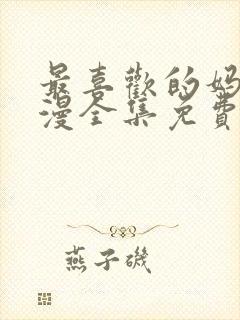 最喜歡的妈
漫全集免費
燕子磯